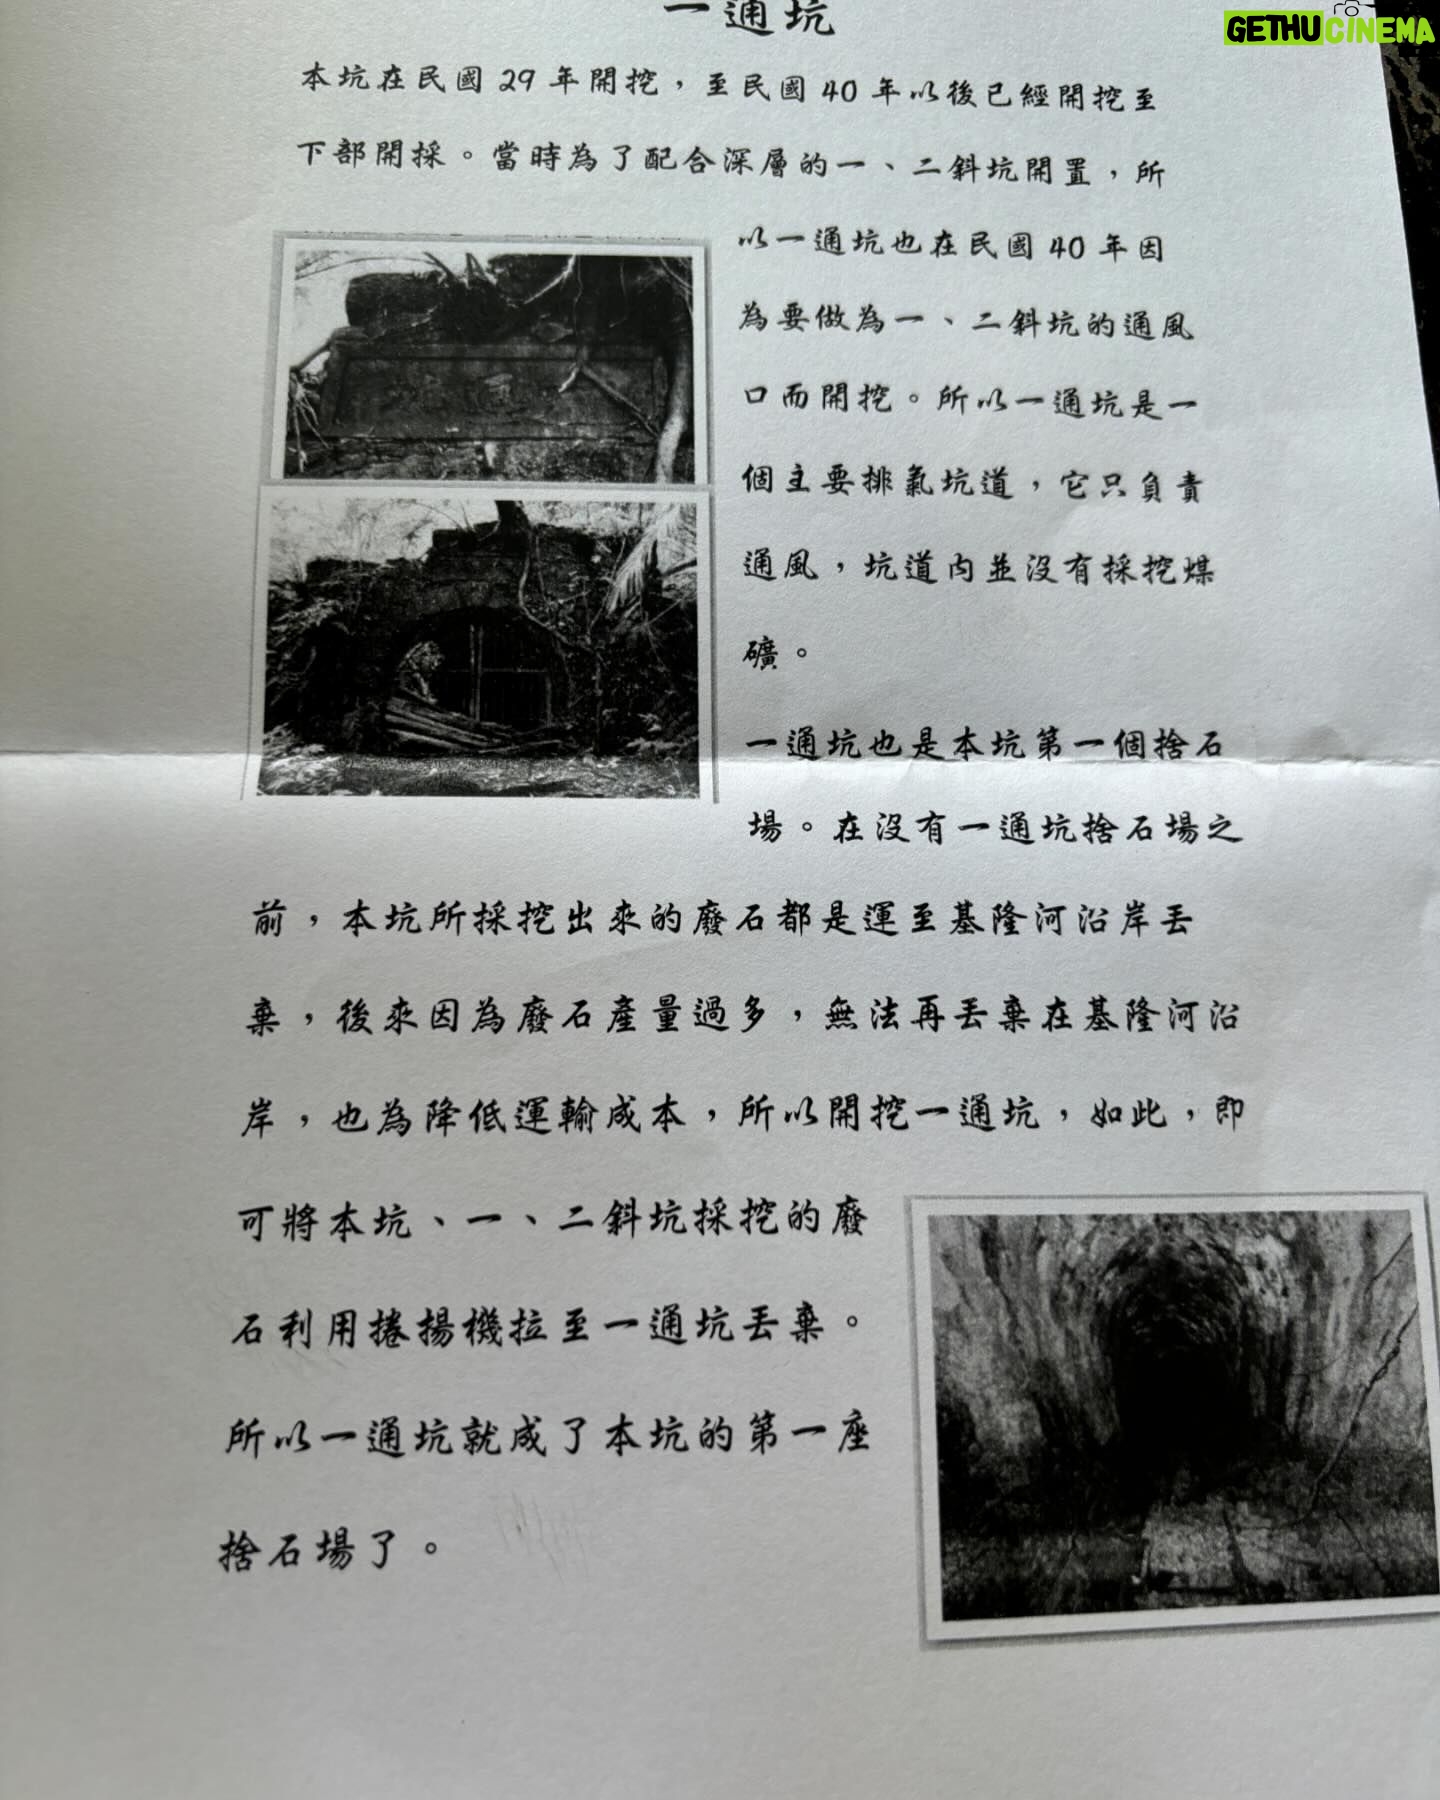 GETHUCINEMA
一通坑
本坑在民國29年開挖，至民國40年以後已經開挖至
下部開採。當時為了配合深層的一、二斜坑開置，所
以一通坑也在民國40年因
為要做為一、二斜坑的通風
口而開挖。所以一通坑是一
個主要排氣坑道，它只負責
通風，坑道內並沒有採挖煤
礦。
一通坑也是本坑第一個捨石
場。在沒有一通坑捨石場之
前，本坑所採挖出來的廢石都是運至基隆河沿岸丟
棄，後來因為廢石產量過多，無法再丟棄在基隆河沿
岸，也為降低運輸成本，所以開挖一通坑，如此，即
可將本坑、一、二斜坑採挖的廢
石利用捲揚機拉至一通坑丟棄。
所以一通坑就成了本坑的第一座
捨石場了。